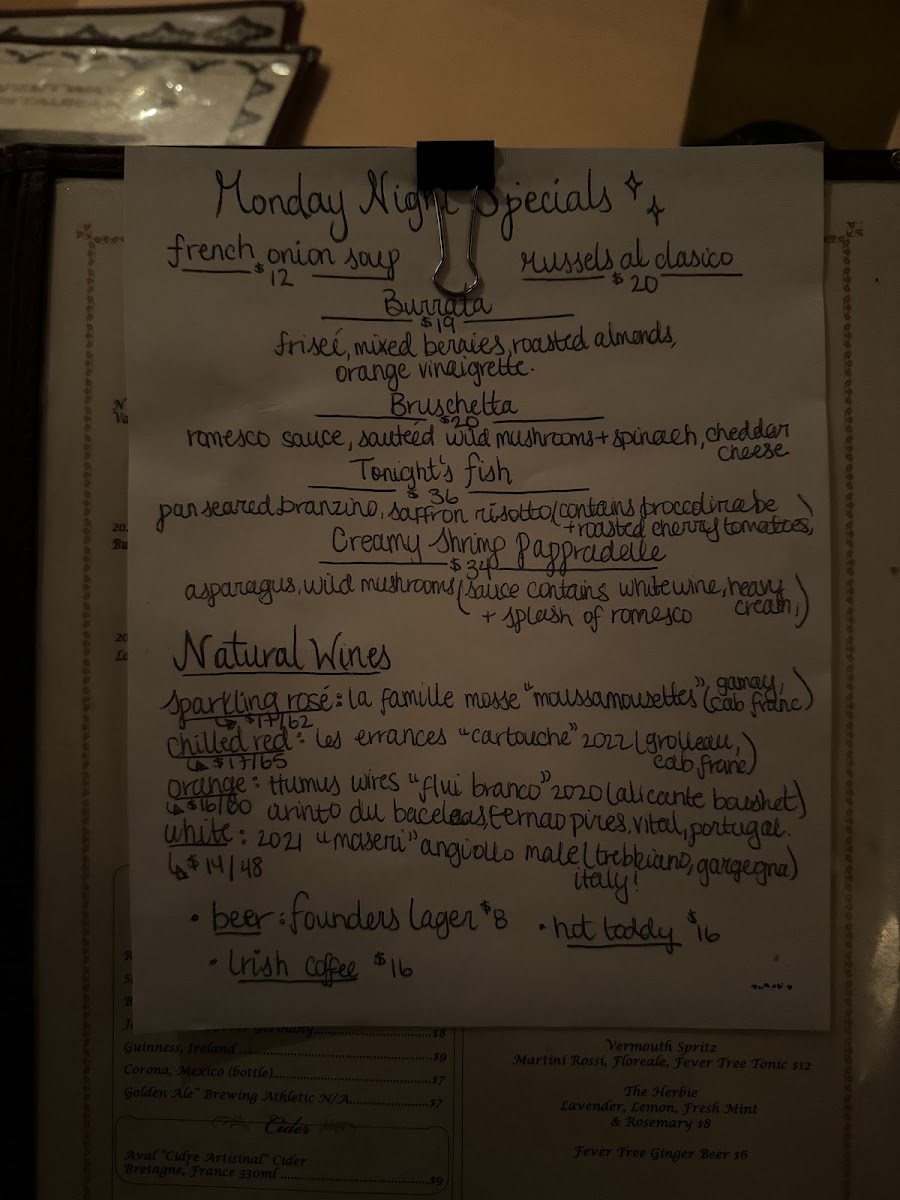 Monday Night Specials
french onion soup
$12
mussels al clasico
$20
Burrata
$19
friseé, mixed berries, roasted almonds,
orange vinaigrette.
Bruschetta
$20
romesco sauce, sauteéd wild mushrooms + spinach, cheddar
cheese
Tonight's fish
$36
pan seared branzino, saffron risotto (contains broccoli rabe
+ roasted cherry tomatoes,)
Creamy Shrimp Pappradelle
$34
asparagus, wild mushrooms (sauce contains white wine, heavy
cream,
+ splash of romesco)
Natural Wines
sparkling rosé: la famille mosse "moussamousettes" (gamay,
cab franc)
↳ $17/62
chilled red: les errances "cartouche" 2022 (grolleau,
cab franc)
↳ $17/65
orange: Humus wires "flui branco" 2020 (alicante boushet)
↳ $16/60 arinto du baceleas, ternao pires, vital, portugal.
white: 2021 "maseri" angiollo male (trebbiano, gargegna)
↳ $14/48 italy!
• beer: founders lager $8
• hot toddy $16
• Irish coffee $16
Germany $8
Guinness, Ireland $9
Corona, Mexico (bottle) $7
Golden Ale" Brewing Athletic N/A $7
Cider
Aval "Cidre Artisinal" Cider
Bretagne, France 330ml $9
Vermouth Spritz
Martini Rossi, Floreale, Fever Tree Tonic $12
The Herbie
Lavender, Lemon, Fresh Mint
& Rosemary $8
Fever Tree Ginger Beer $6